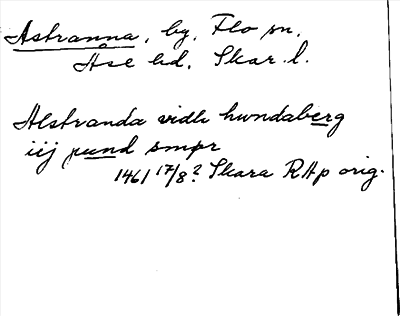 Åstranna, by, Flo sn,
Åse hd, Skar. l.
Alstranda vidh hwndaberg
iij pund smør
1461 17/8? Skara RAp orig.